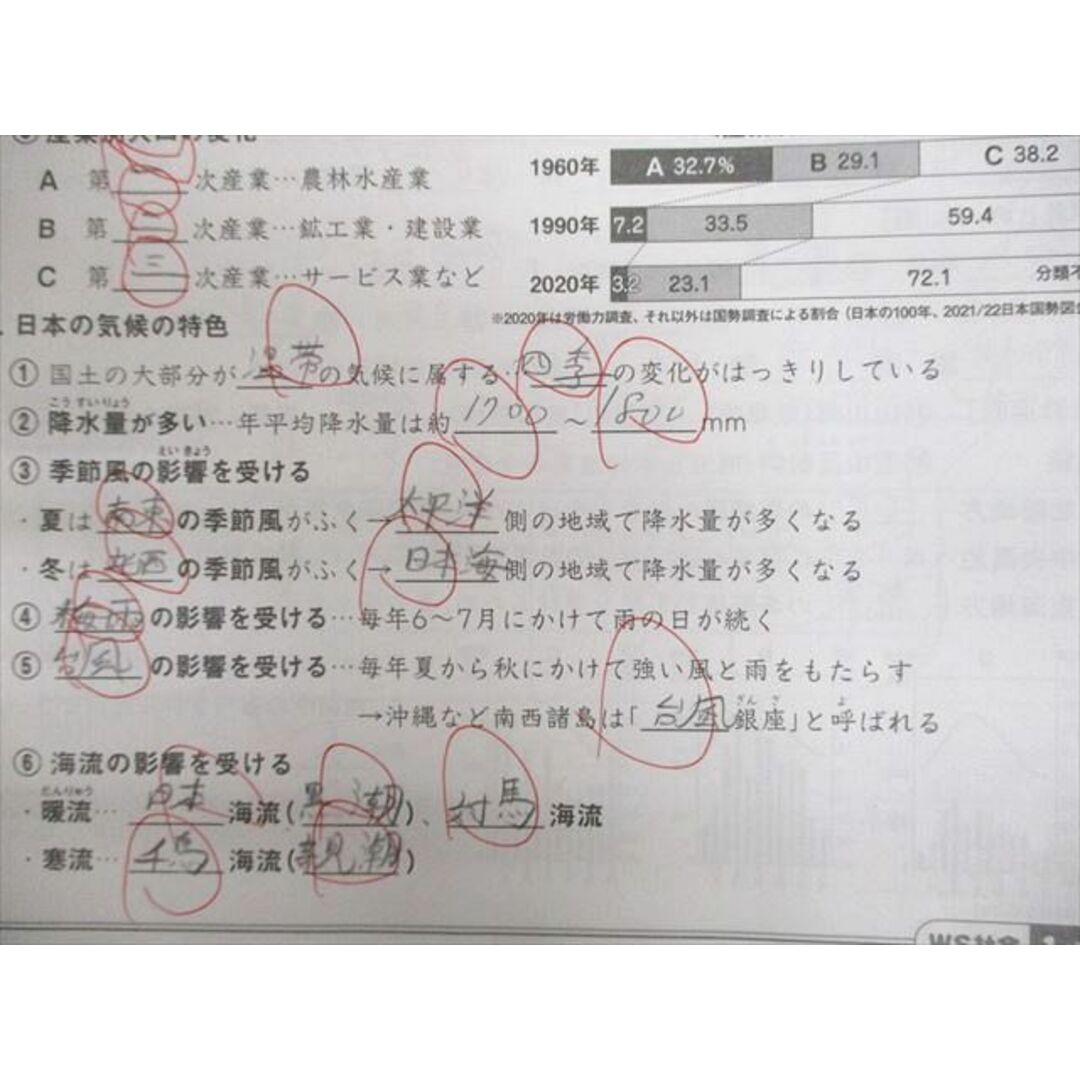 A 第一次産業…農林水産業
B 第二次産業…鉱工業・建設業
C 第三次産業…サービス業など
1960年 A 32.7% B 29.1 C 38.2
1990年 7.2 33.5 59.4
2020年 3.2 23.1 72.1 分類不
※2020年は労働力調査、それ以外は国勢調査による割合(日本の100年、2021/22日本国勢図会
日本の気候の特色
① 国土の大部分が温帯の気候に属する・四季の変化がはっきりしている
こうすいりょう
② 降水量が多い…年平均降水量は約1700～1800mm
えいきょう
③ 季節風の影響を受ける
・夏は南東の季節風がふく→太平洋側の地域で降水量が多くなる
・冬は北西の季節風がふく→日本海側の地域で降水量が多くなる
④ 梅雨の影響を受ける…毎年6～7月にかけて雨の日が続く
⑤ 台風の影響を受ける…毎年夏から秋にかけて強い風と雨をもたらす
ざんざ よ
→沖縄など南西諸島は「台風銀座」と呼ばれる
⑥ 海流の影響を受ける
だんりゅう
・暖流…日本海流(黒潮)、対馬海流
・寒流…千島海流(親潮)
WS社会 1